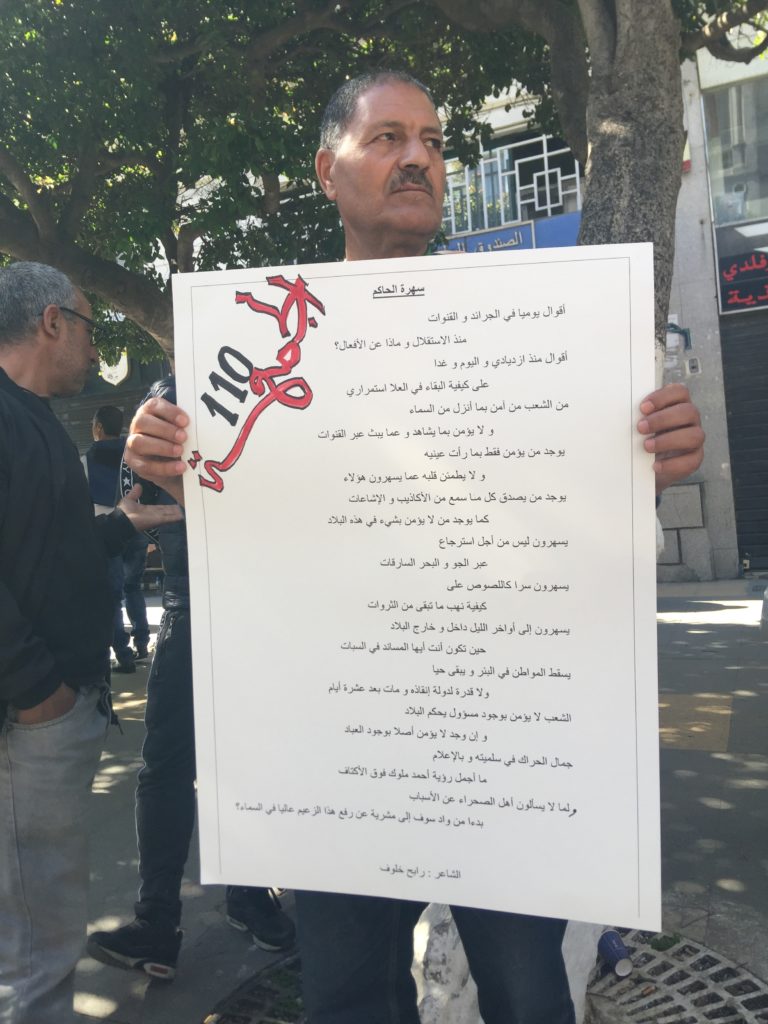 سهرة الحاكم
جمعة
110
أقوال يوميا في الجرائد و القنوات
منذ الاستقلال و ماذا عن الأفعال؟
أقوال منذ ازديادي و اليوم و غدا
على كيفية البقاء في العلا استمراري
من الشعب من آمن بما أنزل من السماء
و لا يؤمن بما يشاهد و عما يبث عبر القنوات
يوجد من يؤمن فقط بما رأت عينيه
و لا يطمئن قلبه عما يسهرون هؤلاء
يوجد من يصدق كل ما سمع من الأكاذيب و الإشاعات
كما يوجد من لا يؤمن بشيء في هذه البلاد
يسهرون ليس من أجل استرجاع
عبر الجو و البحر السارقات
يسهرون سرا كاللصوص على
كيفية نهب ما تبقى من الثروات
يسهرون إلى أواخر الليل داخل و خارج البلاد
حين تكون أنت أيها المساند في السبات
يسقط المواطن في البئر و يبقى حيا
ولا قدرة لدولة إنقاذه و مات بعد عشرة أيام
الشعب لا يؤمن بوجود مسؤول يحكم البلاد
و إن وجد لا يؤمن أصلا بوجود العباد
جمال الحراك في سلميته و بالإعلام
ما أجمل رؤية أحمد ملوك فوق الأكتاف
ولما لا يسألون أهل الصحراء عن الأسباب
بدءا من واد سوف إلى مشرية عن رفع هذا الزعيم عاليا في السماء؟
الشاعر : رابح خلوف
الصندوق